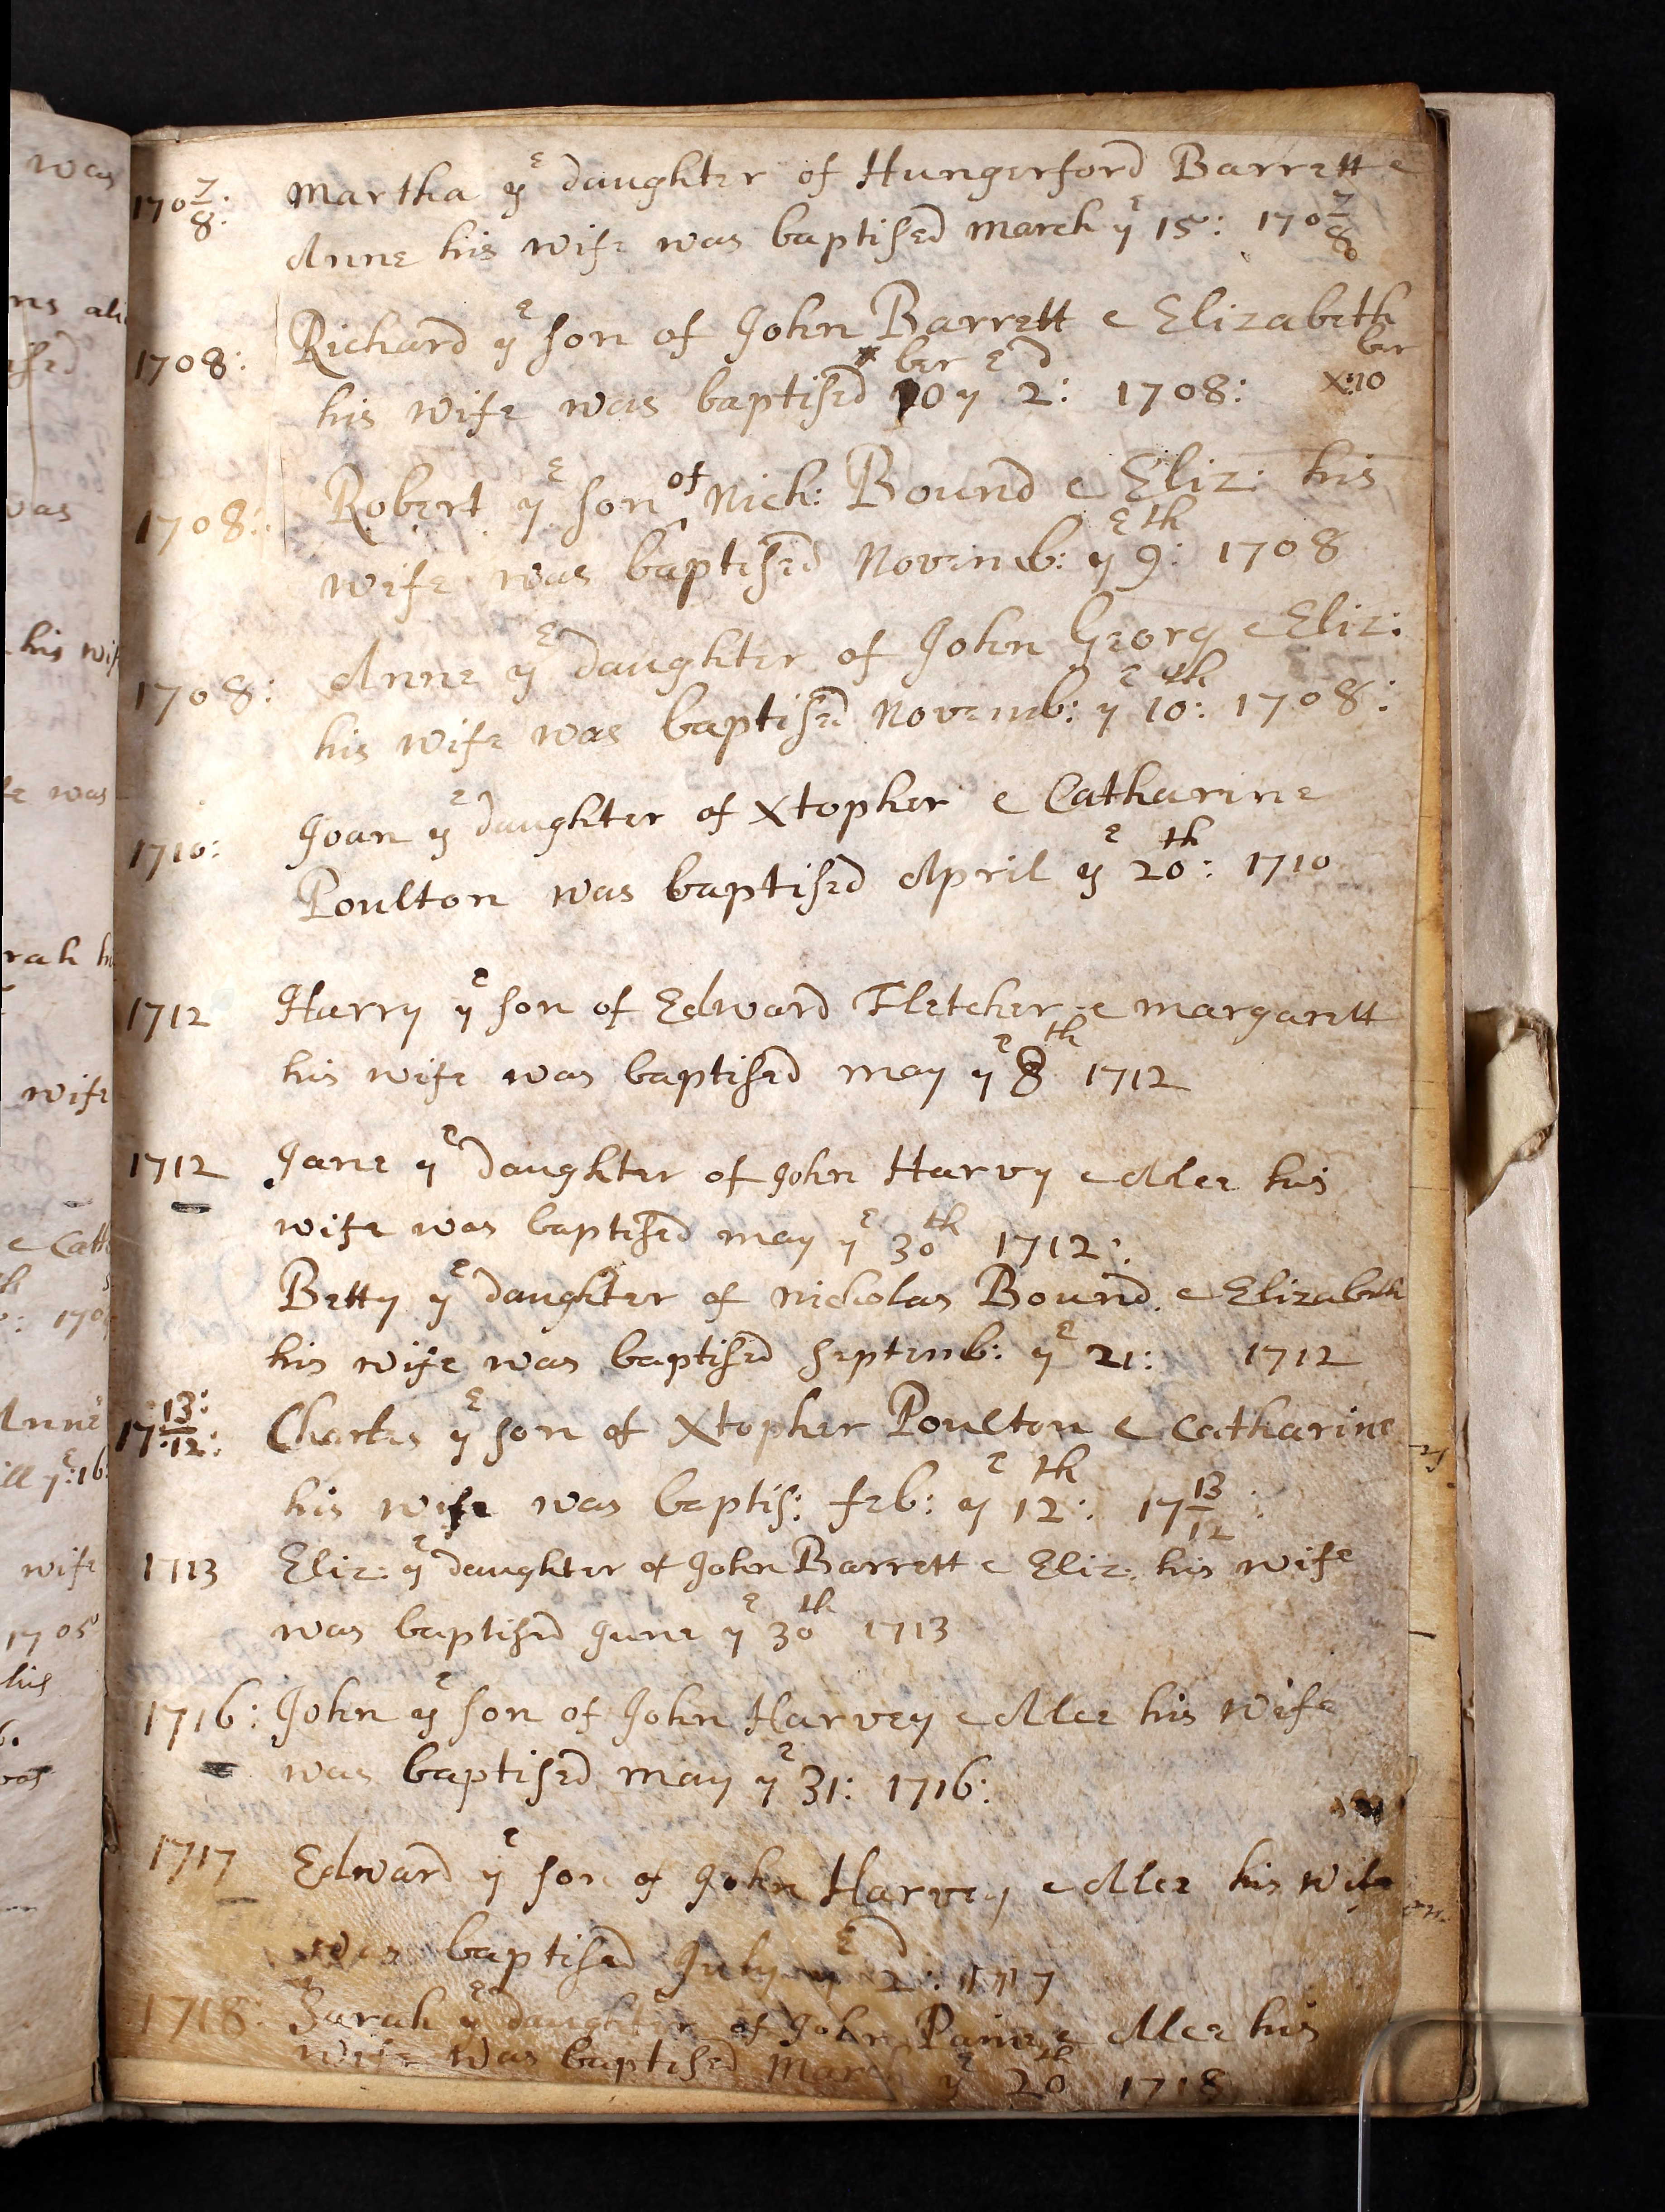 170 7/8: Martha yͤ daughter of Hungerford Barrett &
Anne his wife was baptised march yͤ 15: 170 7/8
1708: Richard yͤ son of John Barrett & Elizabeth
his wife was baptised 10ber yͤ 2d: 1708: X:10ber
1708: Robert yͤ son of Nich: Bound & Eliz: his
wife was baptised Novemb: yͤ 9th: 1708
1708: Anne yͤ daughter of John Georg & Eliz:
his wife was baptised Novemb: yͤ 10th: 1708:
1710: Joan yͤ daughter of Xtopher & Catharine
Poulton was baptised April yͤ 20th: 1710
1712 Harry yͤ son of Edward Fletcher & margarett
his wife was baptised may yͤ 8th 1712
1712 Jane yͤ daughter of John Harvy & Alce his
wife was baptised may yͤ 30th 1712:
Betty yͤ daughter of nicholas Bound & Elizabeth
his wife was baptised septemb: yͤ 21: 1712
17 13/12: Charles yͤ son of Xtopher Poulton & Catharine
his wife was baptis: feb: yͤ 12th: 17 13/12:
1713 Eliz: yͤ daughter of John Barrett & Eliz: his wife
was baptised June yͤ 30th 1713
1716: John yͤ son of John Harvey & Alce his wife
was baptised may yͤ 31: 1716:
1717 Edward yͤ son of John Harvey & Alce his wife
was baptised July yͤ 2d: 1717
1718: Sarah yͤ daughter of John Paine & Alce his
wife was baptised March yͤ 20th 1718